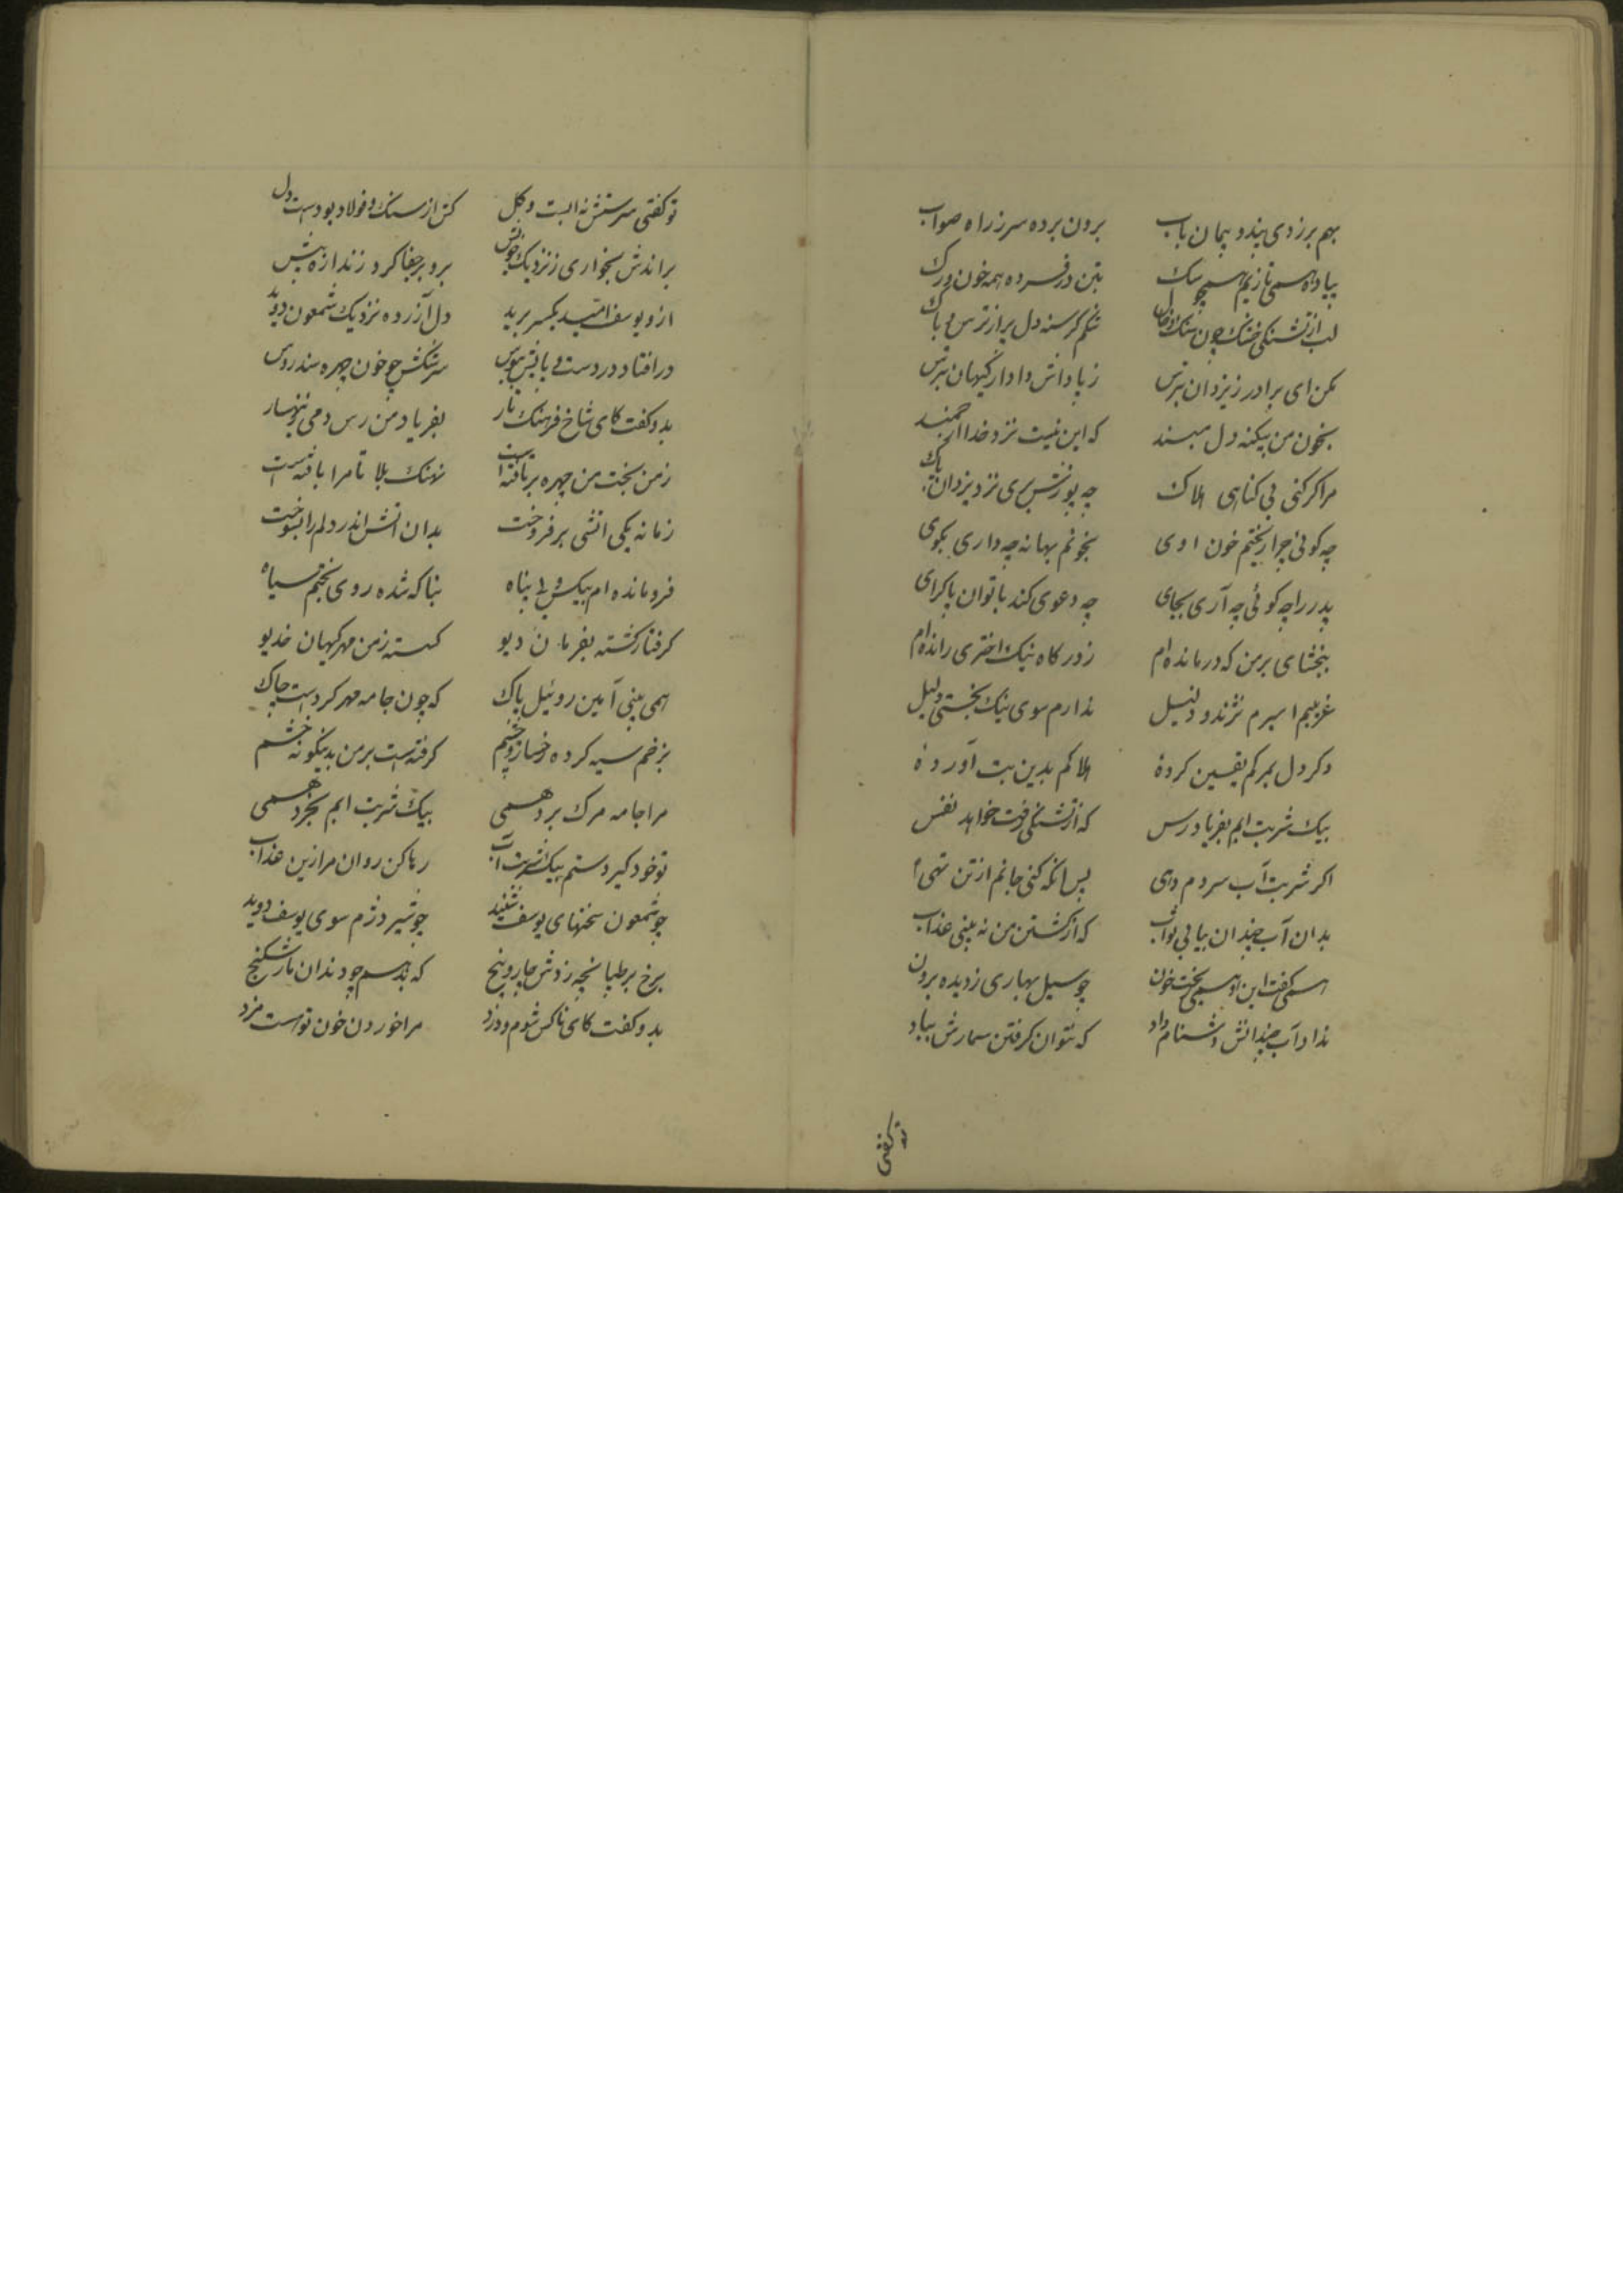 بهم برزدی پند و پیمان باب برون برده سر ز راه صواب
پیاده همی تازیم همچو سک بتن در فسرده همه خون و رک
لب از تشنکی خشک چون سنک و خاک شکم کرسنه دل پر از ترس و باک
مکن ای برادر ز یزدان بترس ز پاداش دادار کیهان بترس
بخون من بیکنه دل مبند که این نیست نزد خدا ارجمند
مرا کر کنی بی کناهی هلاک چه پوزش بری نزد یزدان پاک
چه کوئی چرا ریختم خون اوی بخونم بهانه چه داری بکوی
پدر را چه کوئی چه آری بجای چه دعوی کند با تو آن پاکرای
ببخشای بر من که درمانده‌ام ز درکاه نیک اختری رانده‌ام
غریبم اسیرم نژند و ذلیل ندارم سوی نیک بختی دلیل
وکر دل بمرکم یقین کردهٔ هلاکم بدین بت آوردهٔ
بیک شربت ابم بفریاد رس که از تشنکی رفت خواهد نفس
اکر شربت آب سردم دهی پس انکه کنی جانم از تن تهی
بدان آب چندان بیابی ثواب که از کشتن من نه بینی عذاب
همی کفت این و همی ریخت خون چو سیل بهاری ز دیده برون
نداد آب چندانش دشنام داد که نتوان کرفتن سمارش بیاد
تو کفتی
تو کفتی سرشتش نه ابست و کل کش از سنک و فولاد بودست دل
براندش بخواری ز نزدیک خویش برو بر جفا کرد ز اندازه بیش
ازو یوسف امید یکسر برید دل آزرده نزدیک شمعون دوید
در افتاد در دست و پایش ببوس سرشکش چو خون چهره سندروس
بدو کفت کای شاخ فرهنک بار بفریاد من رس دمی زینهار
ز من بخت من چهره برتافته است نهنک بلا تا مرا یافته است
زمانه یکی اتشی برفروخت بدان اتش اندر دلم را بسوخت
فرومانده‌ام بیکس و بی پناه بناکه شده روی بختم سیاه
کرفتار کشته بفرمان دیو کسسته ز من مهر کیهان خدیو
همی بینی آیین روئیل پاک که چون جامه مهر کردست چاک
بزخم سیه کرده رخسار و چشم کرفتست بر من بدینکونه خشم
مرا جامه مرک برد همی بیک شربت ابم نخرد همی
تو خود کیر دستم بیک شربت آب رها کن روان مرا زین عذاب
چو شمعون سخنهای یوسف شنید چو شیر دژم سوی یوسف دوید
برخ بر طپانچه زدش چار و پنج که بد هم چو دندان مار شکنج
بدو کفت کای ناکس شوم و دزد مرا خوردن خون تو است مزد